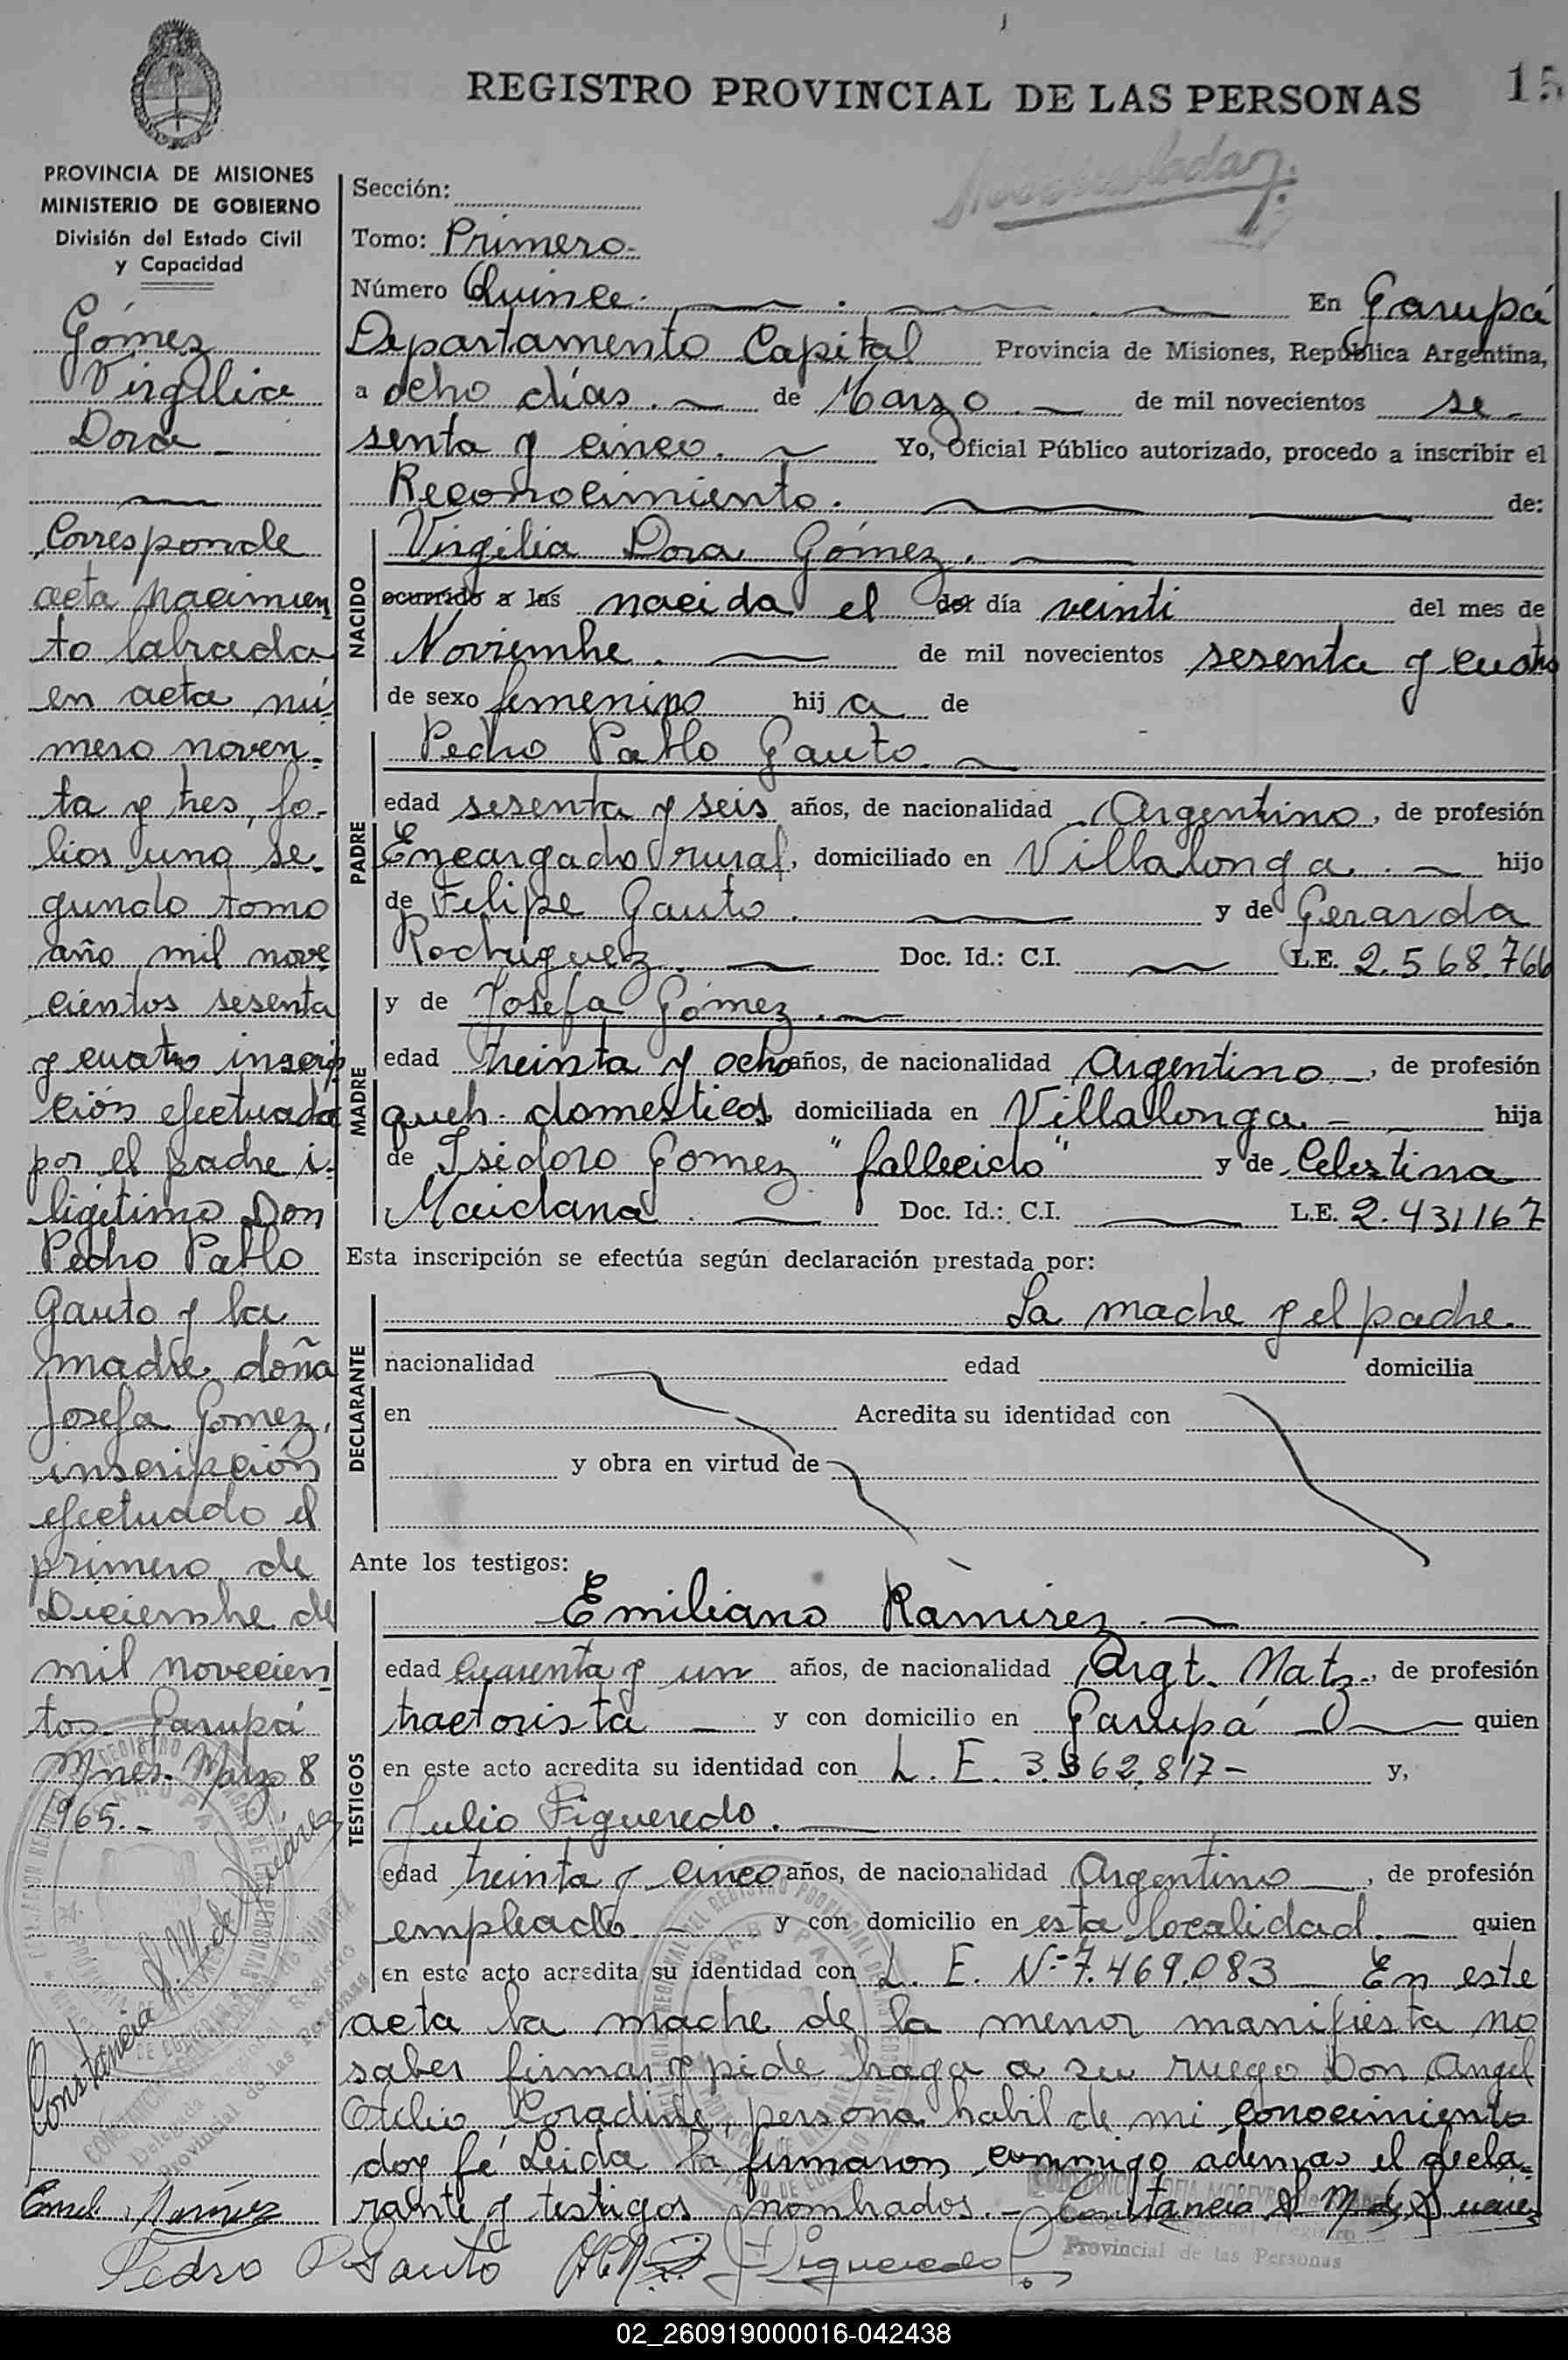 REGISTRO PROVINCIAL DE LAS PERSONAS
15
PROVINCIA DE MISIONES
MINISTERIO DE GOBIERNO
División del Estado Civil
y Capacidad
Gómez
Virgilia
Dora
Corresponde
acta nacimien
to labrada
en acta nú-
mero noven-
ta y tres, fo-
lios uno se-
gundo tomo
año mil nove
cientos sesenta
y cuatro inscrip
ción efectuada
por el padre i-
ligitimo Don
Pedro Pablo
Gauto y la
madre doña
Josefa Gomez,
inscripción
efectuado el
primero de
Diciembre de
mil novecien
tos- Garupá
Mnes. Marzo 8
1965.-
Sección:
Tomo: Primero-
Número Quince. En Garupá
Departamento Capital Provincia de Misiones, República Argentina,
a ocho días. de Marzo de mil novecientos se-
senta y cinco. Yo, Oficial Público autorizado, procedo a inscribir el
Reconocimiento. de:
NACIDO
Virgilia Dora Gómez.
ocurrido a las nacida el del día veinti del mes de
Noviembre. de mil novecientos sesenta y cuatro
de sexo femenino hija de
PADRE
Pedro Pablo Gauto.
edad sesenta y seis años, de nacionalidad Argentino, de profesión
Encargado rural, domiciliado en Villalonga. hijo
de Felipe Gauto. y de Gerarda
Rodriguez. Doc. Id.: C.I. L.E. 2.568.766
MADRE
y de Josefa Gómez.
edad treinta y ocho años, de nacionalidad Argentino, de profesión
queh. domesticos domiciliada en Villalonga. hija
de Isidoro Gomez "fallecido" y de Celestina
Maidana. Doc. Id.: C.I. L.E. 2.431167
Esta inscripción se efectúa según declaración prestada por:
DECLARANTE
La madre y el padre.
nacionalidad edad domicilia
en Acredita su identidad con
y obra en virtud de
Ante los testigos:
TESTIGOS
Emiliano Ramirez.
edad cuarenta y un años, de nacionalidad Argt. Natz., de profesión
tractorista y con domicilio en Garupá quien
en este acto acredita su identidad con L. E. 3.362.817- y,
Julio Figueredo.
edad treinta y cinco años, de nacionalidad Argentino, de profesión
empleado. y con domicilio en esta localidad. quien
en este acto acredita su identidad con L. E. Nº 7.469.083 En este
acta la madre de la menor manifiesta no
saber firmar y pide haga a su ruego Don Angel
Otilio persona habil de mi conocimiento
doy fé Leida la firmaron conmigo ademas el decla-
rante y testigos nombrados.- Constancia S. M. de Suarez
Pedro P Gauto
Figueredo
Provincial de las Personas
02_260919000016-042438